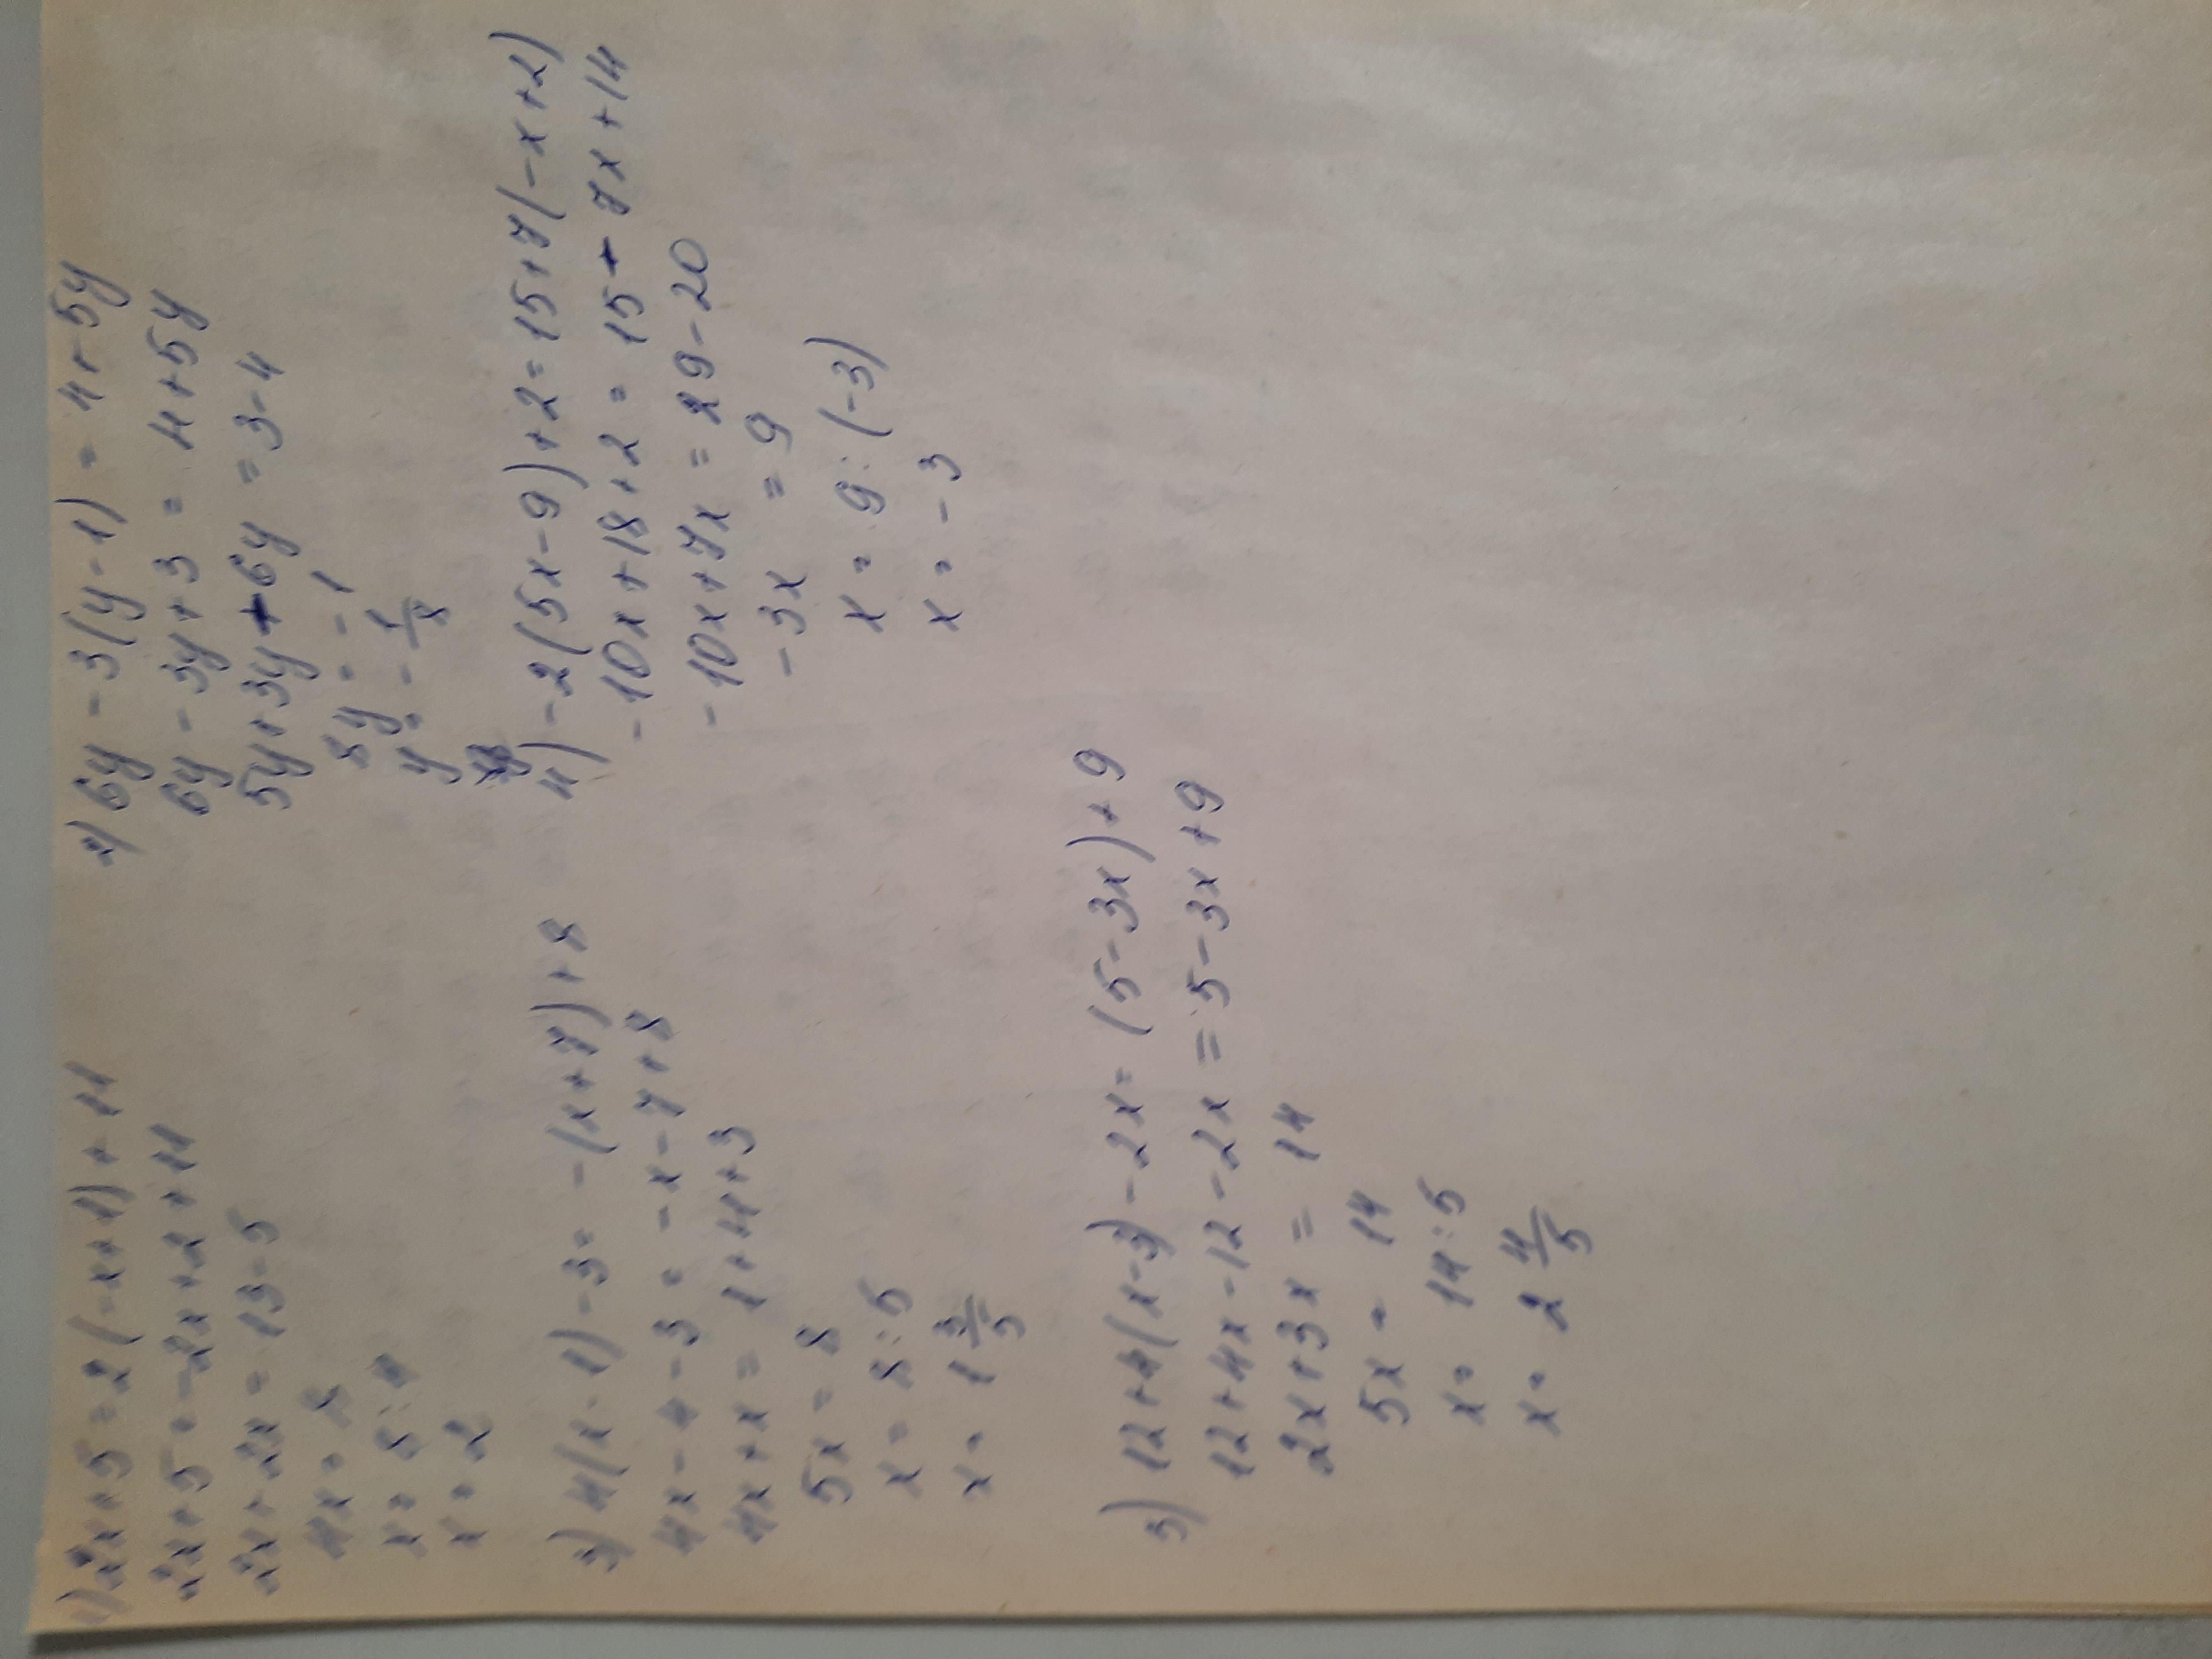 1) 2x+5=2(-x+1)+11
2x+5=-2x+2+11
2x+2x=13-5
4x=8
x=8:4
x=2
2) 6y-3(y-1)=4+5y
6y-3y+3=4+5y
5y+3y+6y=3-4
8y=-1
y=-
3) 4(x-1)-3=-(x+7)+8
4x-4-3=-x-7+8
4x+x=1+4+3
5x=8
x=8:5
x=1 3/5
4) -2(5x-9)+2=15+7(-x+2)
-10x+18+2=15-7x+14
-10x+7x=29-20
-3x=9
x=9:(-3)
x=-3
5) 12+4(x-3)-2x=(5-3x)+9
12+4x-12-2x=5-3x+9
2x+3x=14
5x=14
x=14:5
x=2 4/5